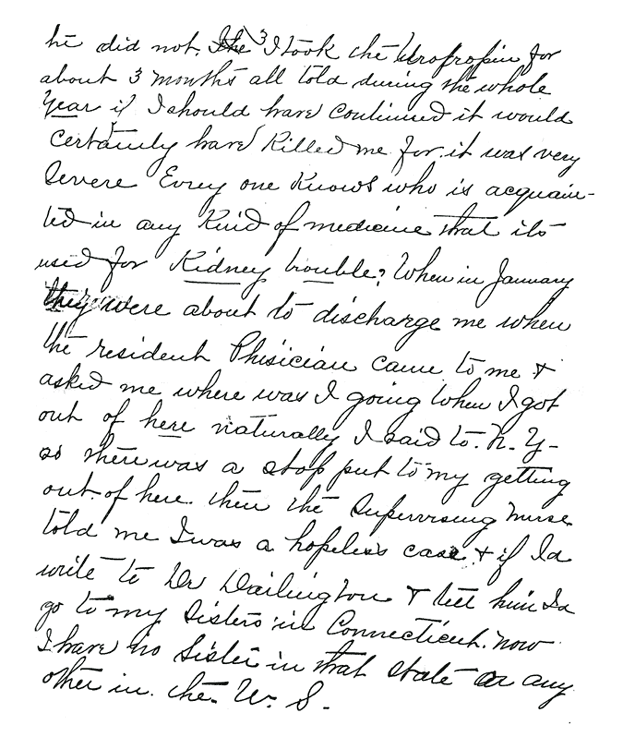 he did not. I took the Urotropin for
about 3 months all told during the whole
year if I should have continued it would
certainly have killed me for it was very
severe Evrey one knows who is acquain-
ted in any kind of medicine that its
used for Kidney trouble? When in January
they were about to discharge me when
the resident Phisician came to me &
asked me where was I going when I got
out of here naturally I said to N. Y-
so there was a stop put to my getting
out of here. then the Supervising nurse
told me I was a hopeless case & if Id
write to Dr Darlington & tell him Id
go to my Sisters in Connecticut. now
I have no Sister in that state or any
other in the U. S.